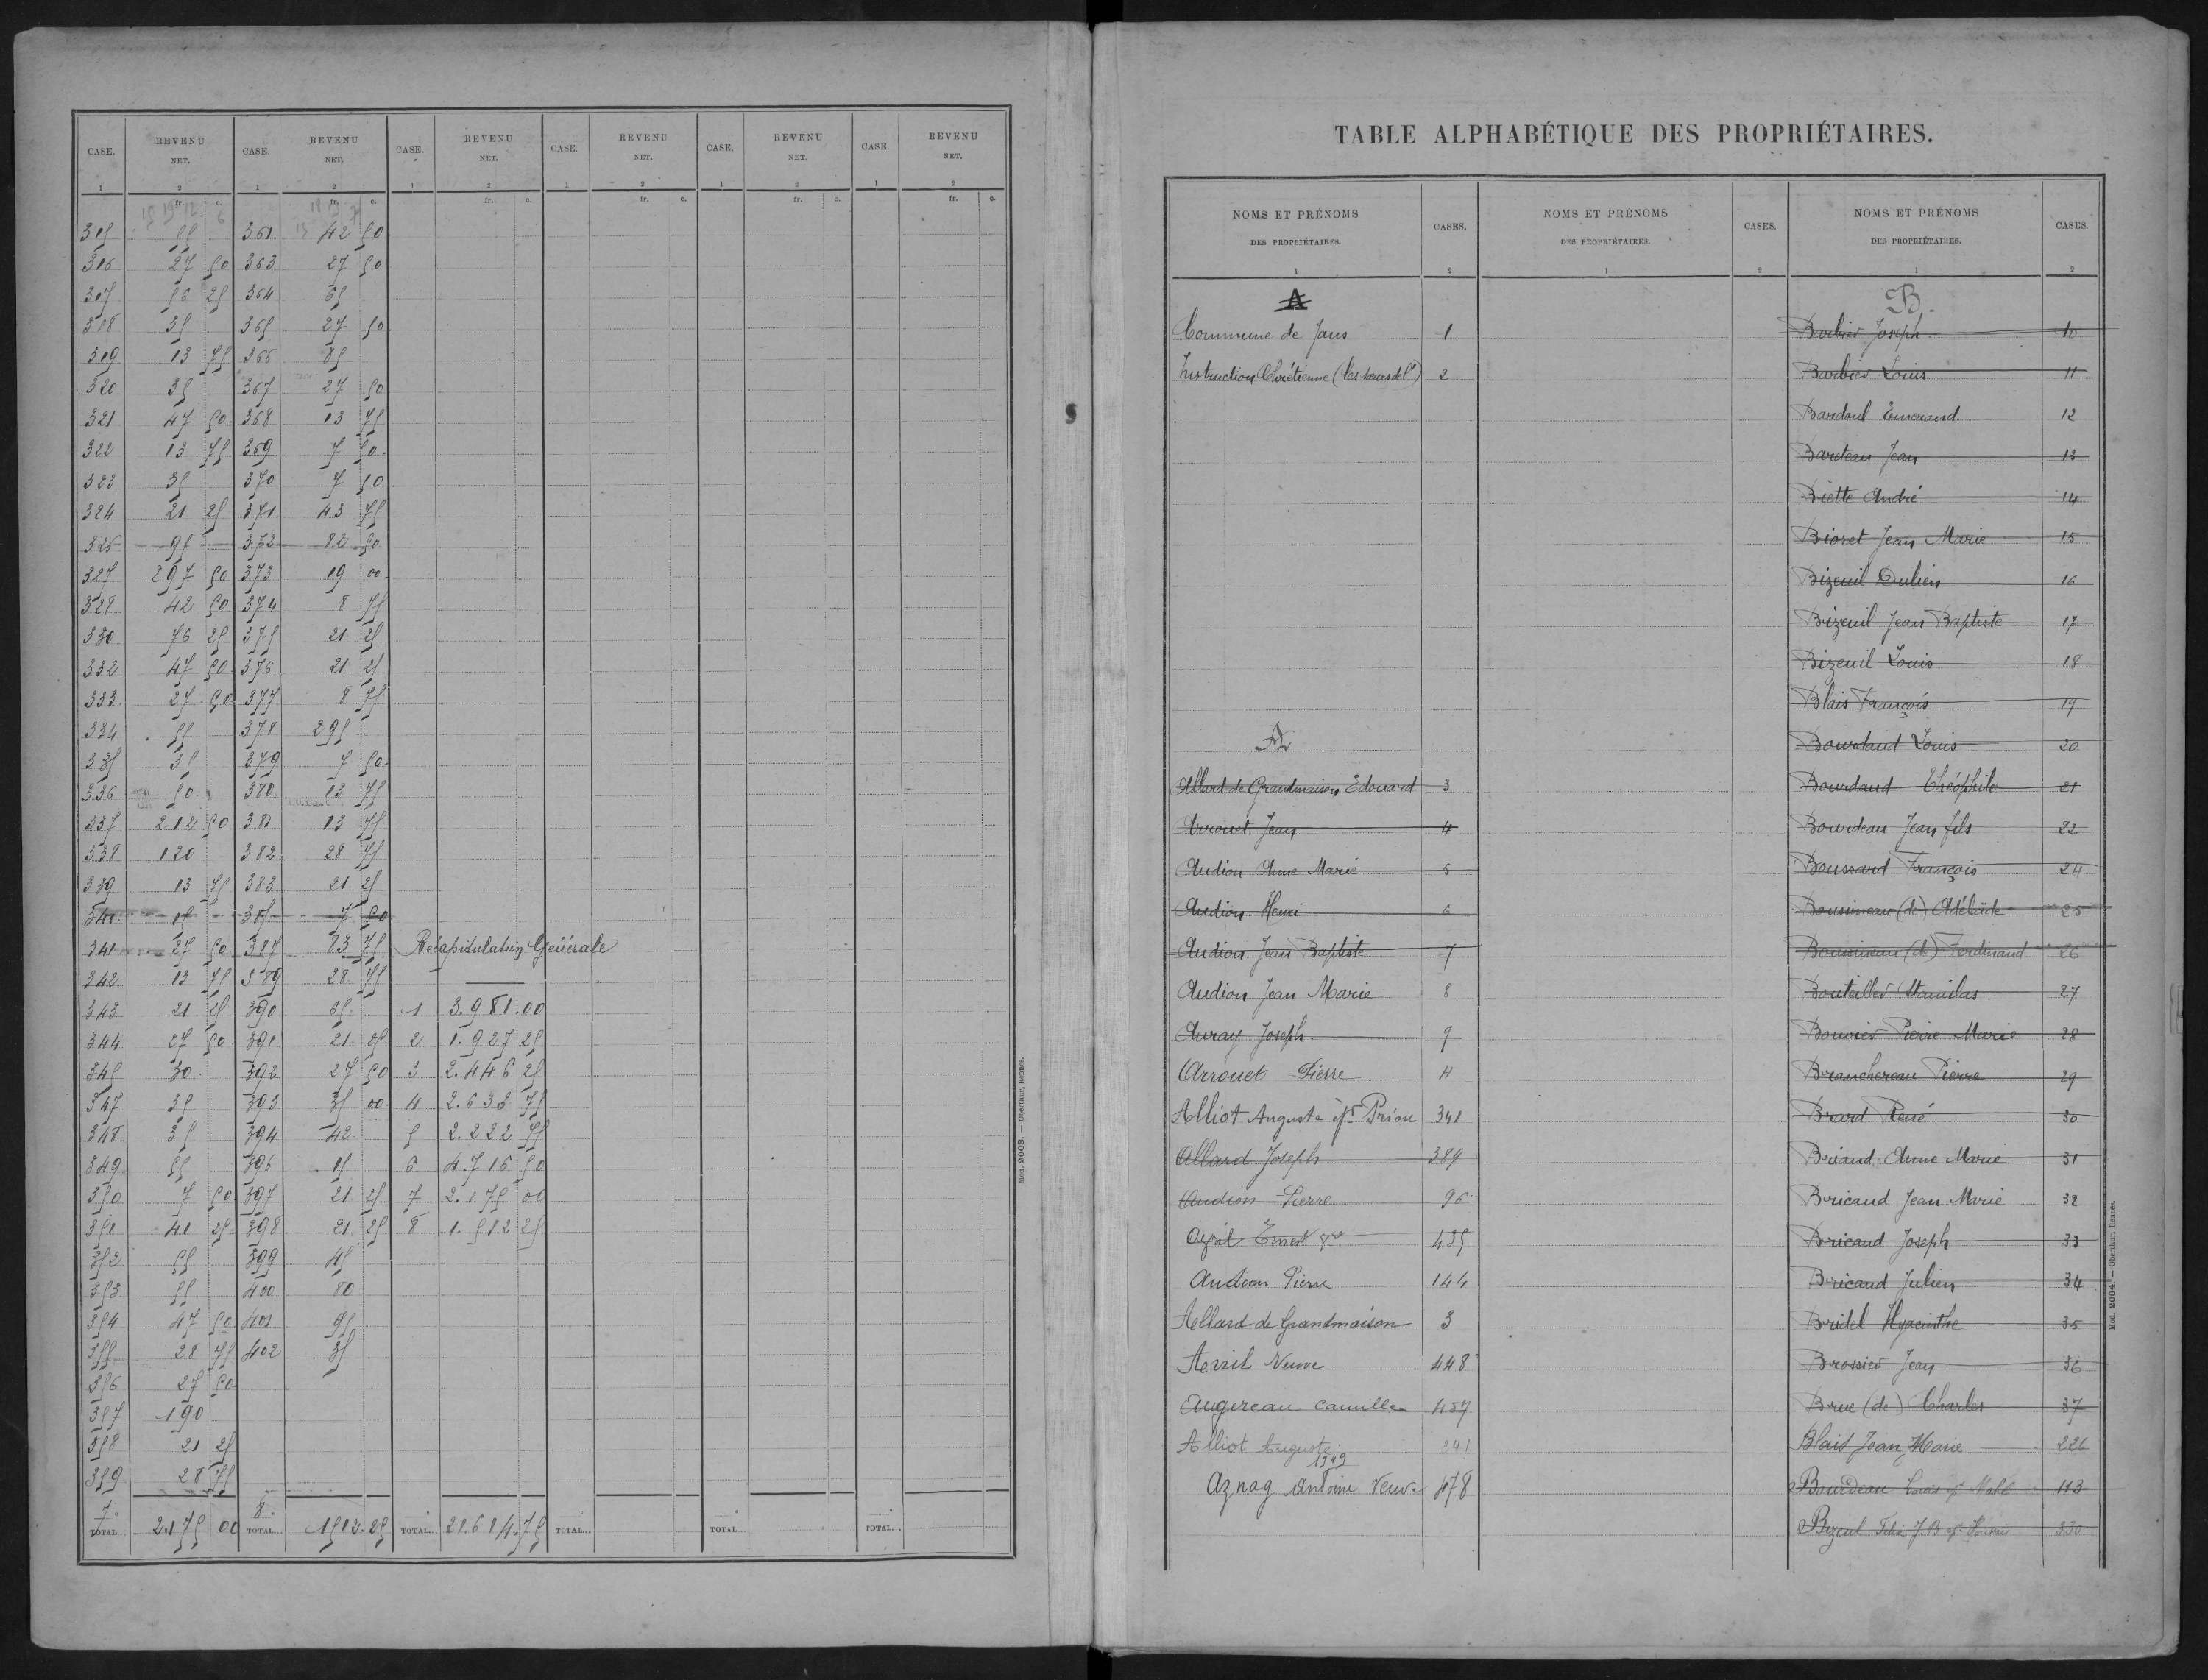 CASE. REVENU NET. CASE. REVENU NET. CASE. REVENU NET. CASE. REVENU NET. CASE. REVENU NET. CASE. REVENU NET.
1 2 1 2 1 2 1 2 1 2 1 2
fr. c. fr. c. fr. c. fr. c. fr. c. fr. c.
315 55 361 42 50
316 27 50 363 27 50
317 56 25 364 65
318 35 365 27 50
319 13 75 366 85
320 35 367 27 50
321 47 50 368 13 75
322 13 75 369 7 50
323 35 370 7 50
324 21 25 371 43 75
326 95 372 82 50
327 297 50 373 19 00
328 42 50 374 8 75
330 76 25 375 21 25
332 47 50 376 21 25
333 27 50 377 8 75
334 55 378 295
335 35 379 7 50
336 50 380 13 75
337 212 50 381 13 75
338 120 382 28 75
339 13 75 383 21 25
340 15 385 7 50
341 27 50 387 83 75 Récapitulation Générale
342 13 75 389 28 75
343 21 25 390 65 1 3.981.00
344 27 50 391 21 25 2 1.927 25
345 30 392 27 50 3 2.446 25
347 35 393 35 00 4 2.633 75
348 35 394 42 5 2.222 75
349 55 396 15 6 4.716 50
350 7 50 397 21 25 7 2.175 00
351 41 25 398 21 25 8 1.512 25
352 55 399 45
353 55 400 80
354 47 50 401 95
355 28 75 402 35
356 27 50
357 190
358 21 25
359 28 75
7. 8.
TOTAL... 2.175 00 TOTAL... 1512.25 TOTAL... 21.614.75 TOTAL... TOTAL... TOTAL...
Mod. 2008. — Oberthur, Rennes.
TABLE ALPHABÉTIQUE DES PROPRIÉTAIRES.
NOMS ET PRÉNOMS DES PROPRIÉTAIRES. CASES. NOMS ET PRÉNOMS DES PROPRIÉTAIRES. CASES. NOMS ET PRÉNOMS DES PROPRIÉTAIRES. CASES.
1 2 1 2 1 2
A
Commune de Jans 1
Instruction Chrétienne (les soeurs de l') 2
A
Allard de Grandmaison Edouard 3
Arrouet Jean 4
Audion Anne Marie 5
Audion Henri 6
Audion Jean Baptiste 7
Audion Jean Marie 8
Auray Joseph 9
Arrouet Pierre 4
Alliot Auguste ép Priou 341
Allard Joseph 389
Audion Pierre 96
Ernest 435
Audion Pierre 144
Allard de Grandmaison 3
Avril Veuve 448
Augereau Camille 457
Alliot Auguste 341
1949
Aznag Antoine Veuve 478
B.
Barbier Joseph 10
Barbier Louis 11
Bardoul Emerand 12
Bareteau Jean 13
Biette André 14
Bioret Jean Marie 15
Bizeuil Julien 16
Bizeuil Jean Baptiste 17
Bizeuil Louis 18
Blais François 19
Bourdaud Louis 20
Bourdaud Théophile 21
Bourdeau Jean fils 22
Boussard François 24
Boussineau (de) Adélaïde 25
Boussineau (de) Ferdinand 26
Bouteiller Stanislas 27
Bouvier Pierre Marie 28
Branchereau Pierre 29
Brard René 30
Briand Anne Marie 31
Bricaud Jean Marie 32
Bricaud Joseph 33
Bricaud Julien 34
Bridel Hyacinthe 35
Brossier Jean 36
Brue (de) Charles 37
Blais Jean Marie 226
Bourdeau Louis 113
Bizeul J B 330
Mod. 2004. — Oberthur, Rennes.